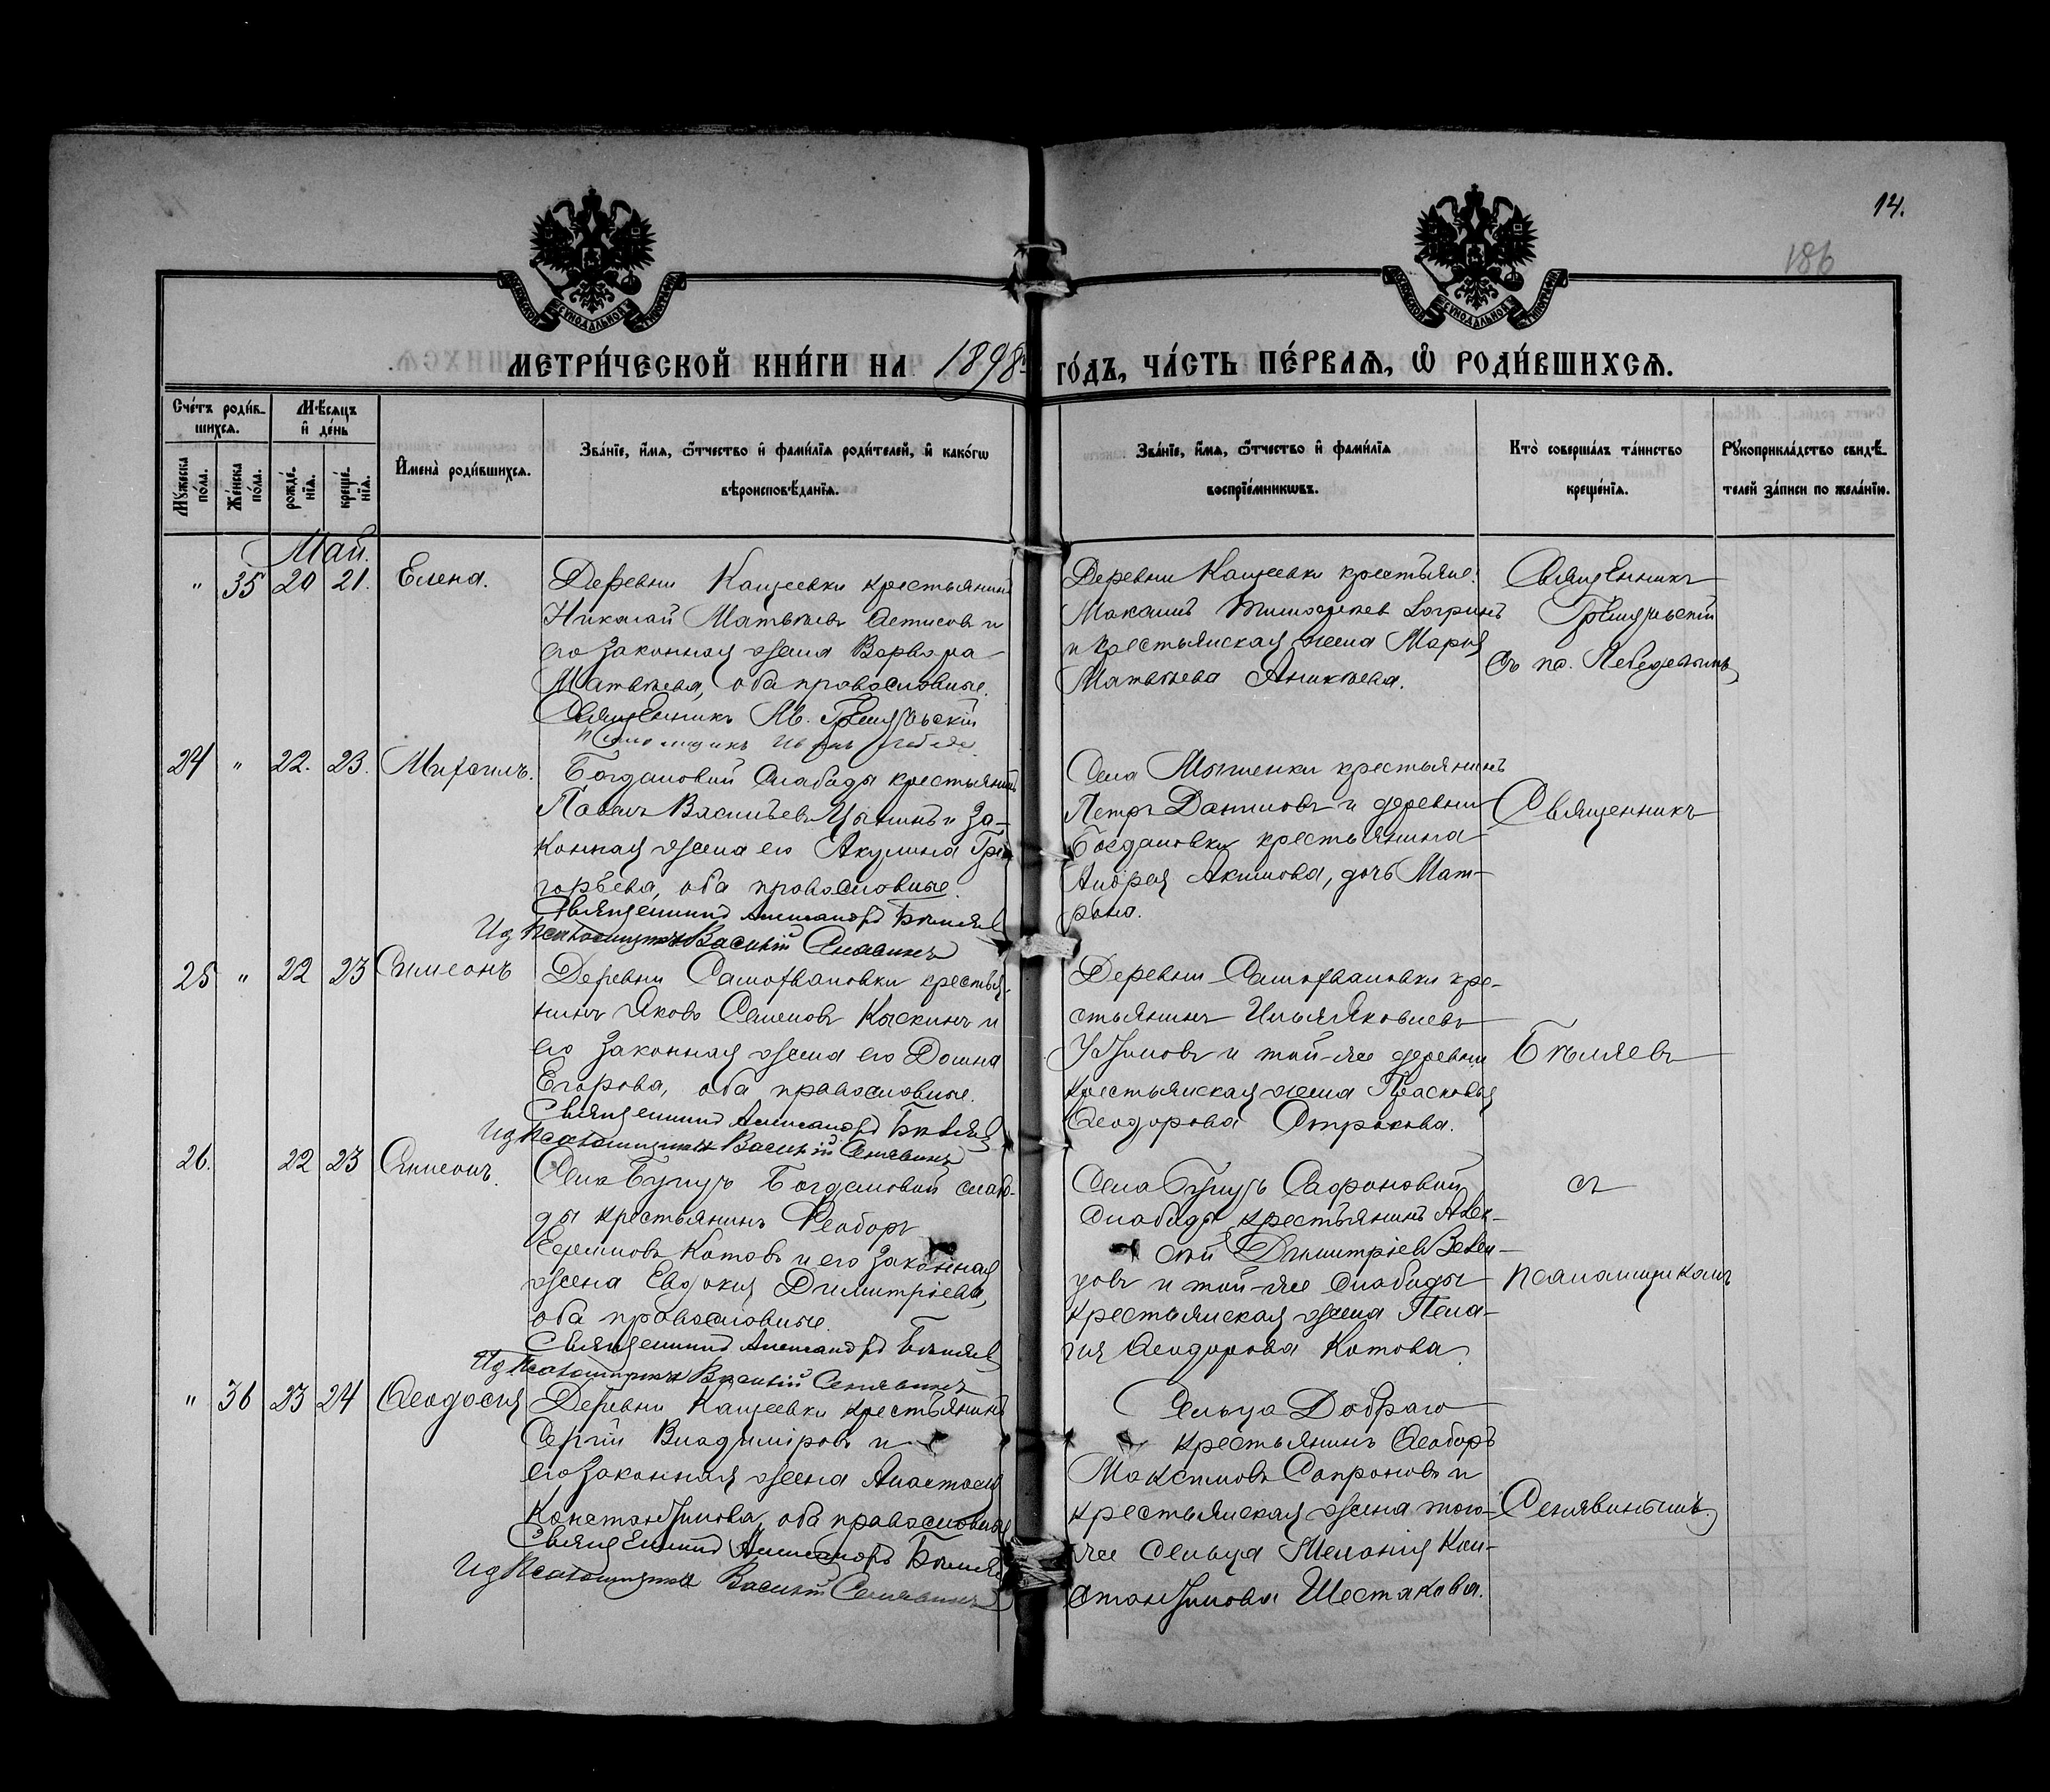 14.
186
МЕТРИ́ЧЕСКОЙ КНИ́ГИ НА 1898й ГО́ДЪ, ЧА́СТЬ ПЕ́РВАѦ, Ѡ҆ РОДИ́ВШИХСѦ.
Сче́тъ роди́в-
шихсѧ.
Мꙋжеска
по́ла.
Же́нска
по́ла.
Мѣ́сѧцъ
и҆ де́нь
рожде́-
нїѧ.
креще́-
нїѧ.
И҆мена̀ роди́вшихсѧ.
Зва́нїе, и҆́мѧ, ѻ҆́тчество и҆ фами́лїѧ роди́телей, и҆ како́гѡ
вѣроисповѣ́данїѧ.
Зва́нїе, и҆́мѧ, ѻ҆́тчество и҆ фами́лїѧ
воспрїе́мникѡвъ.
Кто̀ соверша́лъ та́инство
креще́нїѧ.
Рꙋкоприкла́дство свидѣ́-
телей за́писи по жела́нїю.
Май.
" 35 20 21. Елена.
Деревни Кащеевки крестьянинъ
Николай Матвѣевъ и
его законная жена Варвара
Матвѣева, оба православные.
Священникъ
Деревни Кащеевки крестьяне:
Максимъ Тимофеев
и крестьянская жена Марья
Матвѣева Аникѣева.
Священникъ
съ пс. Лебедевымъ
24 " 22. 23. Михаилъ.
Богдановой Слабады крестьянинъ
Павелъ Васильевъ и за-
конная жена его Акулина Гри-
горьева, оба православные.
Священникъ Александръ Бѣляевъ
Ид Псаломщика Василий Сенявинъ
Села Мышенки крестьянинъ
Петръ Даниловъ и деревни
Богдановки крестьянина
Андрея Акимова, дочь Мат-
рона.
Священникъ
25 " 22 23 Симеонъ
Деревни Самохваловки крестья-
нинъ Яковъ Семеновъ Кыскинъ и
его законная жена его Домна
Егорова, оба православные.
Священникъ Александръ Бѣляевъ
Ид Псаломщика Василий Сенявинъ
Деревни Самохваловки кре-
стьянинъ Илья Яковлевъ
и той-же деревни
крестьянская жена Прасковья
Ѳеодорова Строкова.
Бѣляевъ
26. 22 23 Симеонъ.
Села Богдановой слабо-
ды крестьянинъ Ѳеодоръ
Ефимовъ Котовъ и его законная
жена Евдокия Димитріева,
оба православные.
Священникъ Александръ Бѣляевъ
Ид Псаломщика Василий Сенявинъ
Села Сафоновой
слабады крестьянинъ Алек-
сѣй Димитріевъ
и той-же слабады
крестьянская жена Пела-
гия Ѳеодорова Котова.
съ
псаломщикомъ
" 36 23 24 Ѳеодосия
Деревни Кащеевки крестьянинъ
Сергій Владиміровъ и
его законная жена Анастасия
Константинова, оба православные
Священникъ Александръ Бѣляевъ
Ид Псаломщика Василий Сенявинъ
Сельца Добраго
крестьянинъ Ѳеодоръ
Максимовъ Сапроновъ и
крестьянская жена того-
же сельца Меланія Кон-
стантинова Шестакова.
Сенявинымъ.